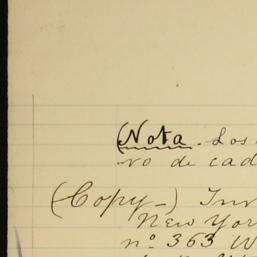 (Nota. Los
ro de cad
(Copy-) Inv
New Yor
nº 363 W